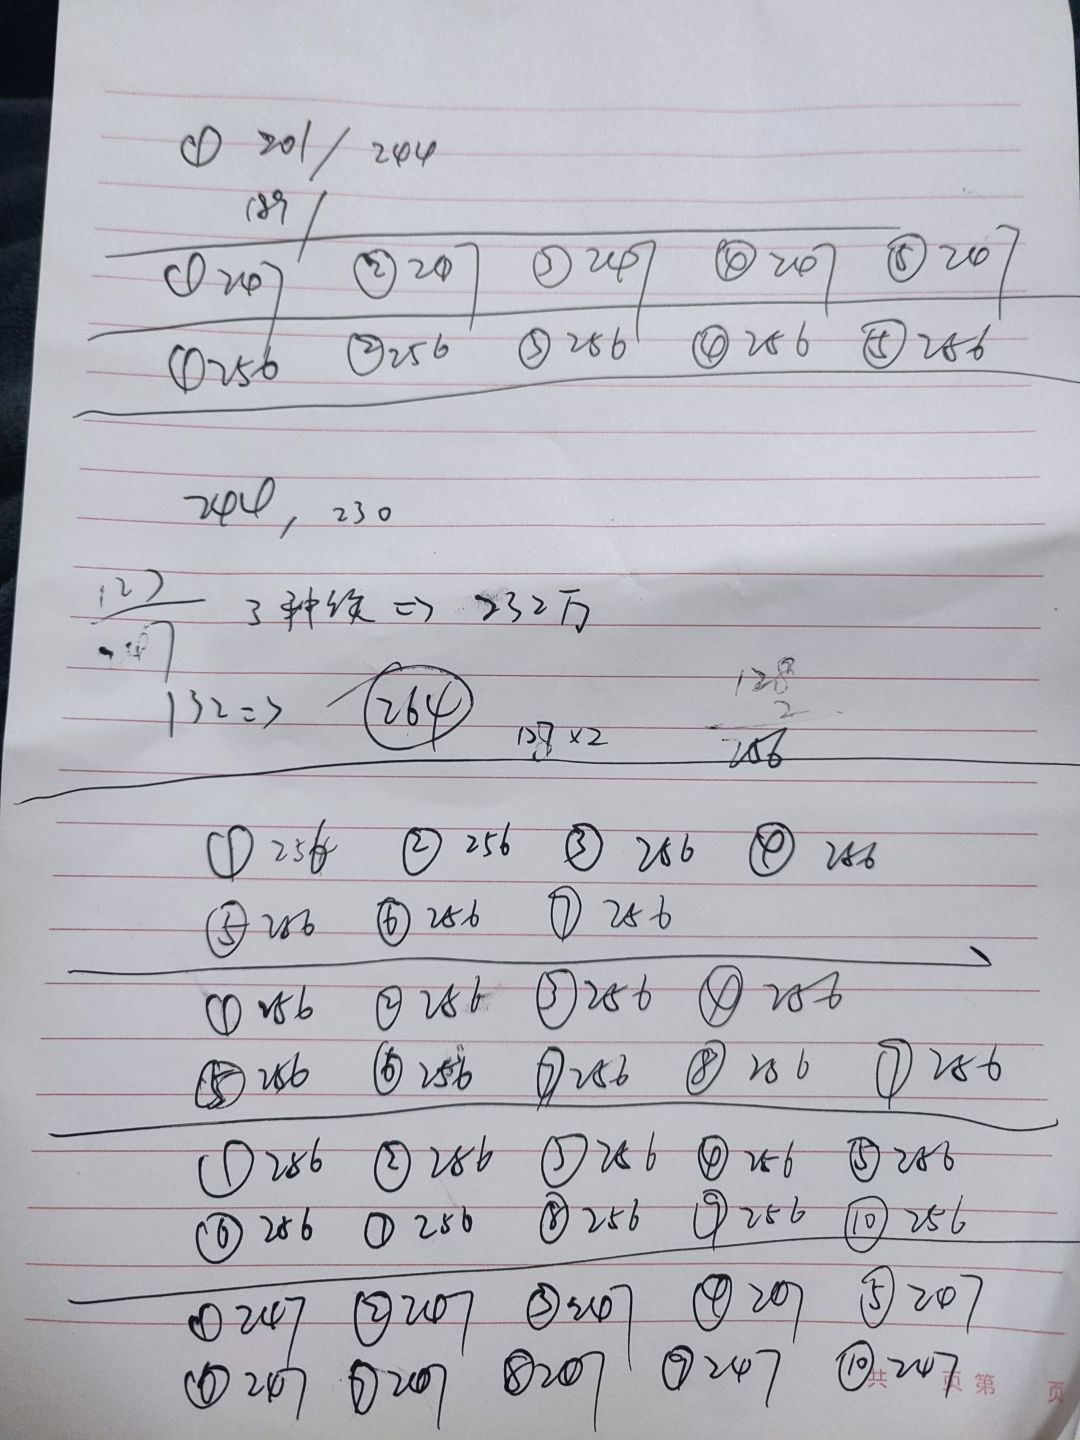 ① 201 / 244
189 /
① 247 ② 247 ③ 247 ④ 247 ⑤ 247
① 256 ② 256 ③ 256 ④ 256 ⑤ 256
244, 230
127
3种 => 232万
132 => 264 128×2
128
2
256
① 256 ② 256 ③ 256 ④ 256
⑤ 256 ⑥ 256 ⑦ 256
① 256 ② 256 ③ 256 ④ 256
⑤ 256 ⑥ 256 ⑦ 256 ⑧ 256 ⑨ 256
① 256 ② 256 ③ 256 ④ 256 ⑤ 256
⑥ 256 ⑦ 256 ⑧ 256 ⑨ 256 ⑩ 256
① 247 ② 247 ③ 247 ④ 247 ⑤ 247
⑥ 247 ⑦ 247 ⑧ 247 ⑨ 247 ⑩ 247
共 页 第 页